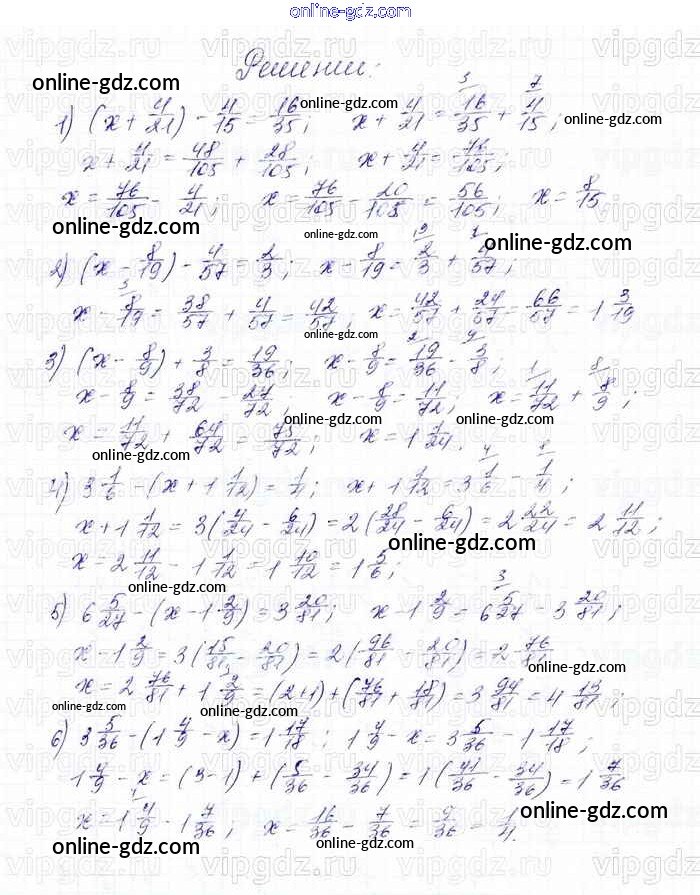 online-gdz.com
Решении:
1) (x + 4/21) - 4/15 = 16/35; x + 4/21 = 16/35 + 4/15;
x + 4/21 = 48/105 + 28/105; x + 4/21 = 76/105;
x = 76/105 - 4/21; x = 76/105 - 20/105 = 56/105; x = 8/15.
2) (x - 8/19) - 4/57 = 2/3; x - 8/19 = 2/3 + 4/57;
x - 8/19 = 38/57 + 4/57 = 42/57; x = 42/57 + 24/57 = 66/57 = 1 3/19
3) (x - 8/9) + 3/8 = 19/36; x - 8/9 = 19/36 - 3/8;
x - 8/9 = 38/72 - 27/72; x - 8/9 = 11/72; x = 11/72 + 8/9;
x = 11/72 + 64/72 = 75/72; x = 1 1/24.
4) 3 1/6 - (x + 1 1/12) = 1/4; x + 1 1/12 = 3 1/6 - 1/4;
x + 1 1/12 = 3(4/24 - 6/24) = 2(28/24 - 6/24) = 2 22/24 = 2 11/12;
x = 2 11/12 - 1 1/12 = 1 10/12 = 1 5/6;
5) 6 5/27 - (x - 1 2/9) = 3 20/81; x - 1 2/9 = 6 5/27 - 3 20/81;
x - 1 2/9 = 3(15/81 - 20/81) = 2(96/81 - 20/81) = 2 76/81
x = 2 76/81 + 1 2/9 = (2+1) + (76/81 + 18/81) = 3 94/81 = 4 13/81;
6) 3 5/36 - (1 4/9 - x) = 1 17/18; 1 4/9 - x = 3 5/36 - 1 17/18;
1 4/9 - x = (3-1) + (5/36 - 34/36) = 1(41/36 - 34/36) = 1 7/36
x = 1 4/9 - 1 7/36; x = 16/36 - 7/36 = 9/36 = 1/4.